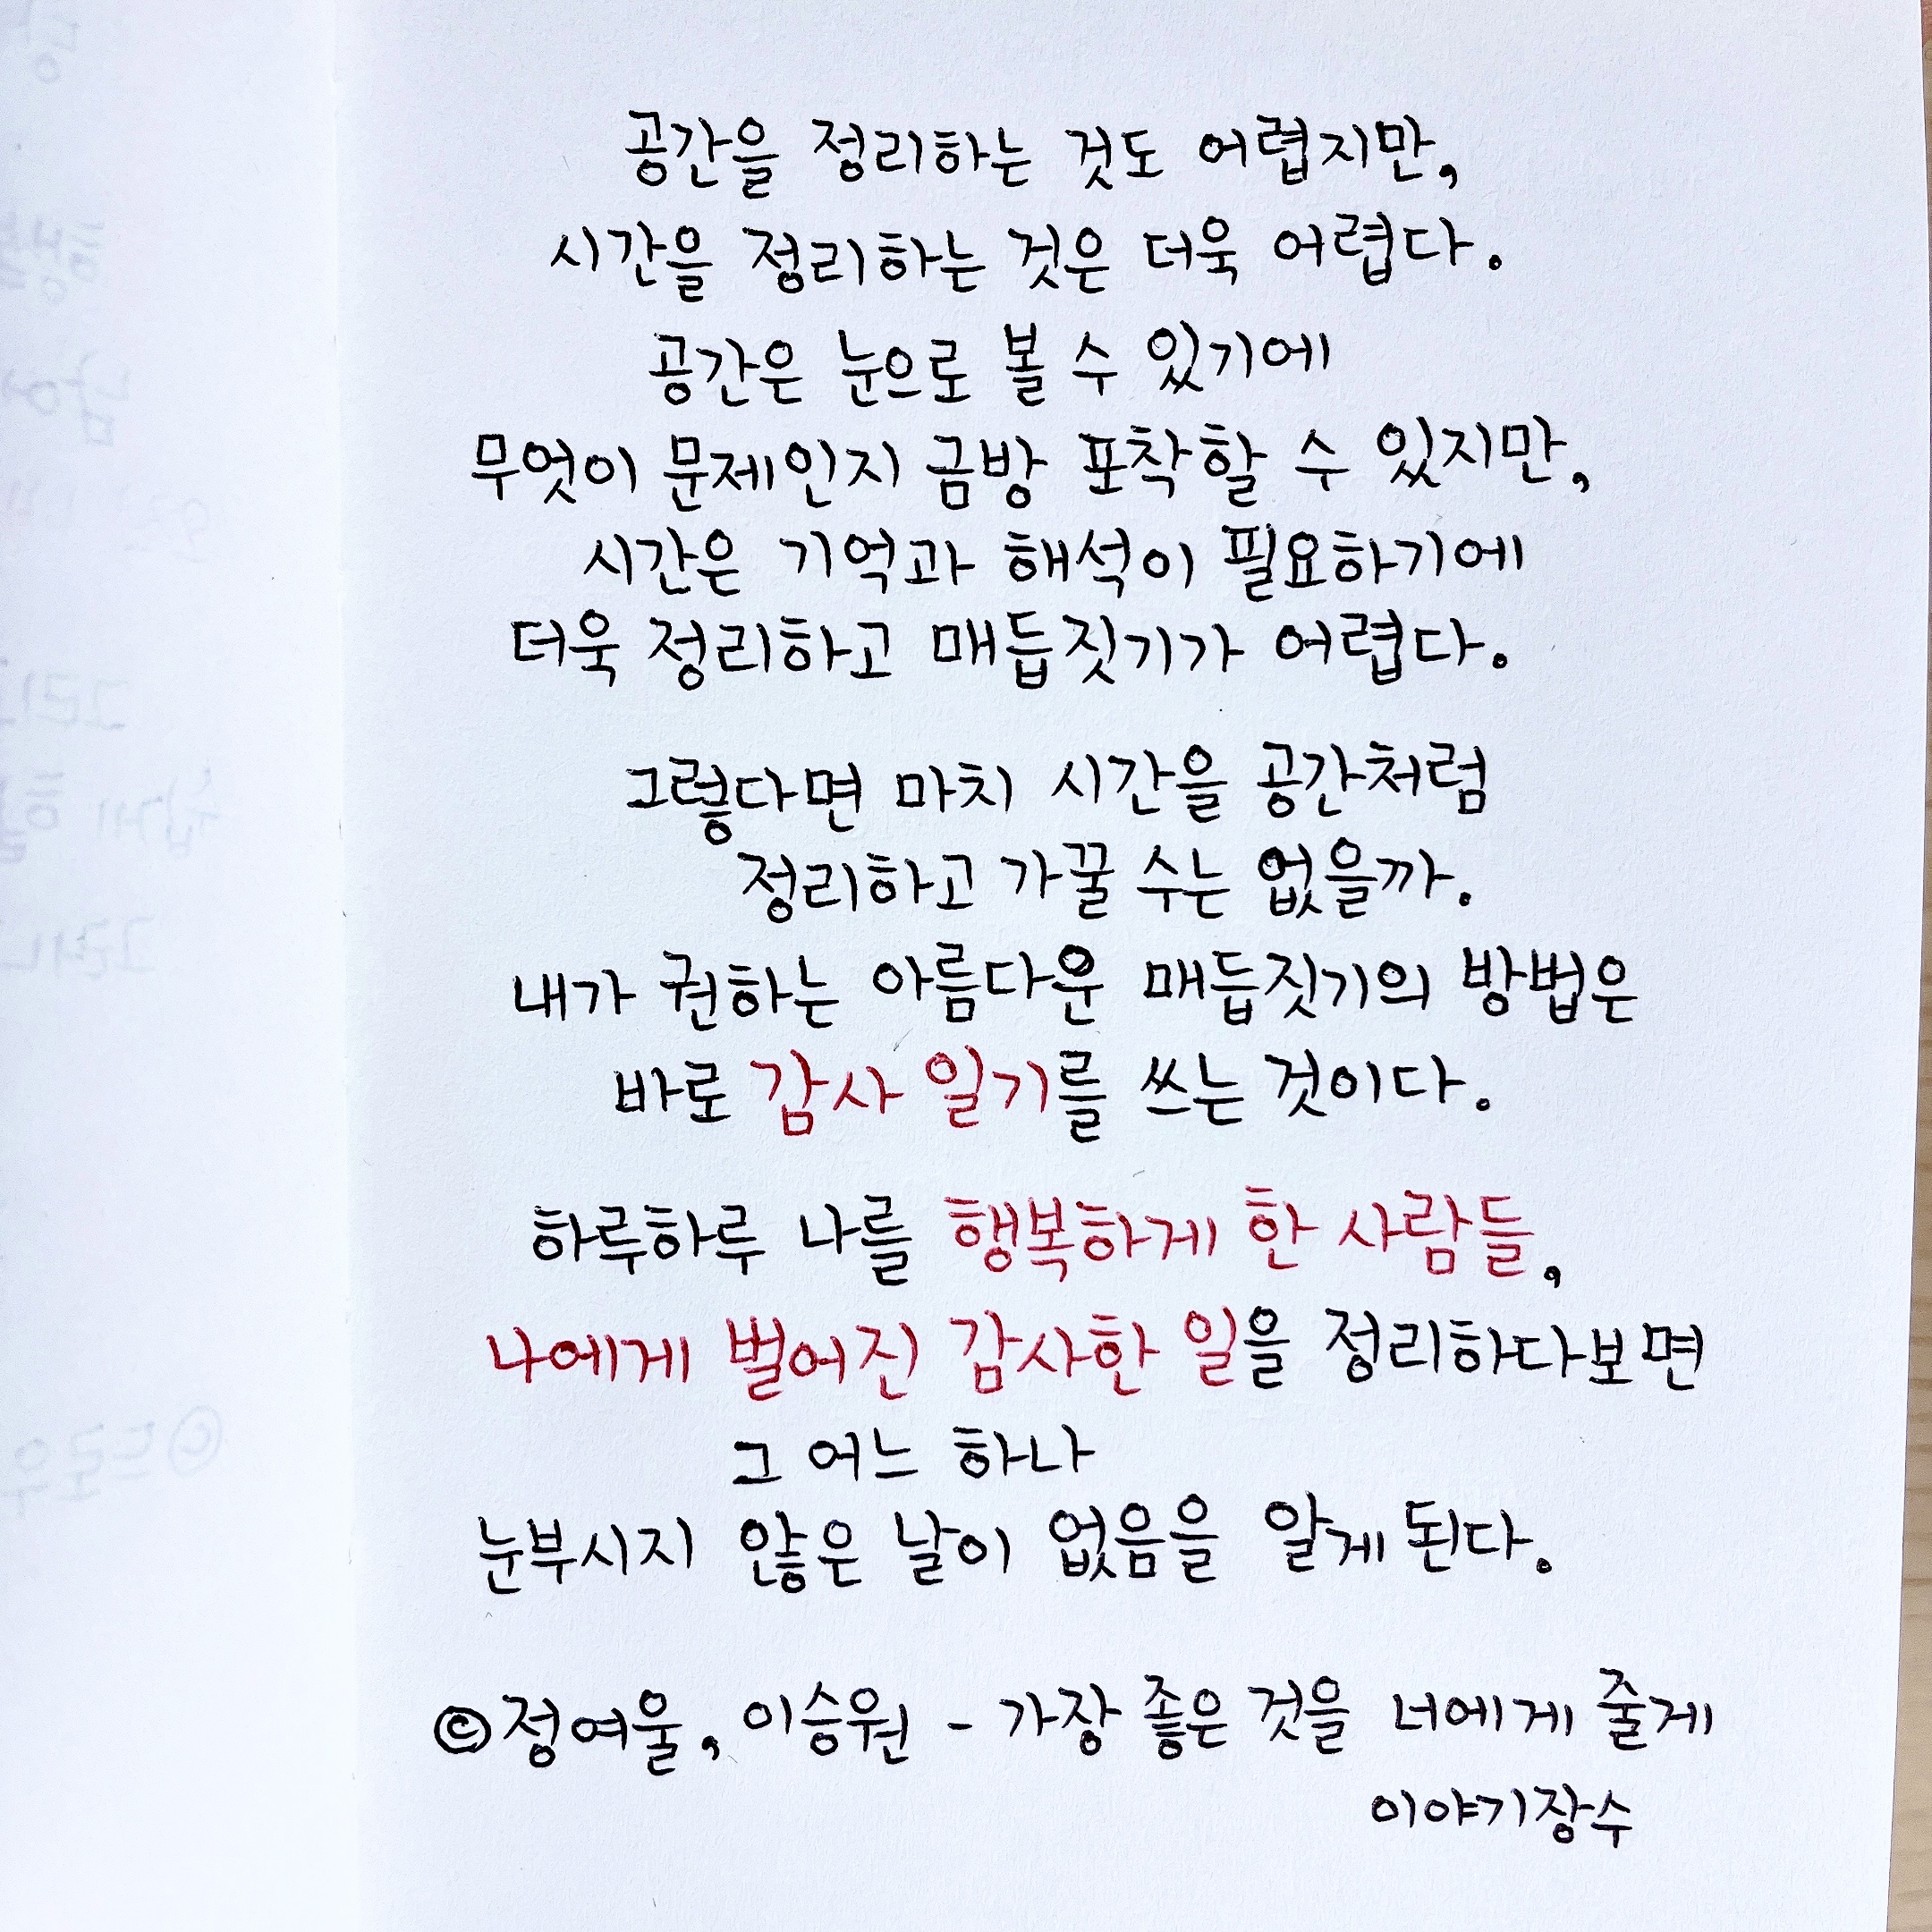 공간을 정리하는 것도 어렵지만,
시간을 정리하는 것은 더욱 어렵다.
공간은 눈으로 볼 수 있기에
무엇이 문제인지 금방 포착할 수 있지만,
시간은 기억과 해석이 필요하기에
더욱 정리하고 매듭짓기가 어렵다.
그렇다면 마치 시간을 공간처럼
정리하고 가꿀 수는 없을까.
내가 권하는 아름다운 매듭짓기의 방법은
바로 감사 일기를 쓰는 것이다.
하루하루 나를 행복하게 한 사람들,
나에게 벌어진 감사한 일을 정리하다보면
그 어느 하나
눈부시지 않은 날이 없음을 알게 된다.
©정여울, 이승원 - 가장 좋은 것을 너에게 줄게
이야기장수